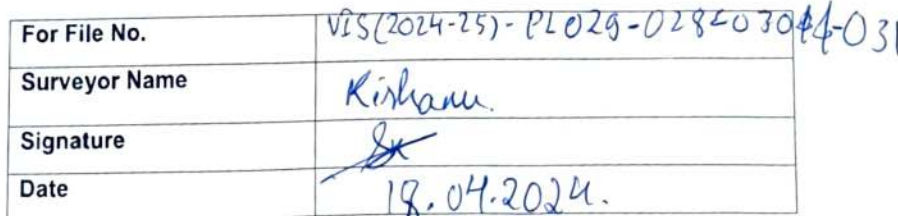 For File No. VIS(2024-25)-PL029-028-030
Surveyor Name
Signature
Date 18.04.2024.